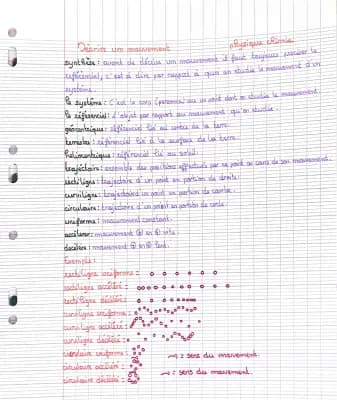 Décrire un mouvement physique chimie
synthèse : avant de décrire un mouvement il faut toujours préciser le
référentiel, c'est à dire par rapport à quoi on étudie le mouvement d'un
système.
Le système : c'est le corps (personne) ou un point dont on étudie le mouvement.
Le référentiel : l'objet par rapport au mouvement qu'on étudie.
géocentrique : référentiel lié au centre de la terre.
terrestre : référentiel lié à la surface de la terre.
héliocentrique : référentiel lié au soleil.
trajectoire : ensemble des positions effectués par un point au cours de son mouvement.
rectiligne : trajectoire d'un point en portion de droite.
curviligne : trajectoire d'un point en portion de courbe.
circulaire : trajectoire d'un point en portion de cercle.
uniforme : mouvement constant.
accélérer : mouvement ⊕ en ⊕ vite.
décélère : mouvement ⊕ en ⊕ lent.
Exemple :
rectiligne uniforme :
rectiligne accéléré :
rectiligne décéléré :
curviligne uniforme :
curviligne accéléré :
curviligne décéléré :
circulaire uniforme : → : sens du mouvement.
circulaire accéléré : → : sens du mouvement.
circulaire décéléré :